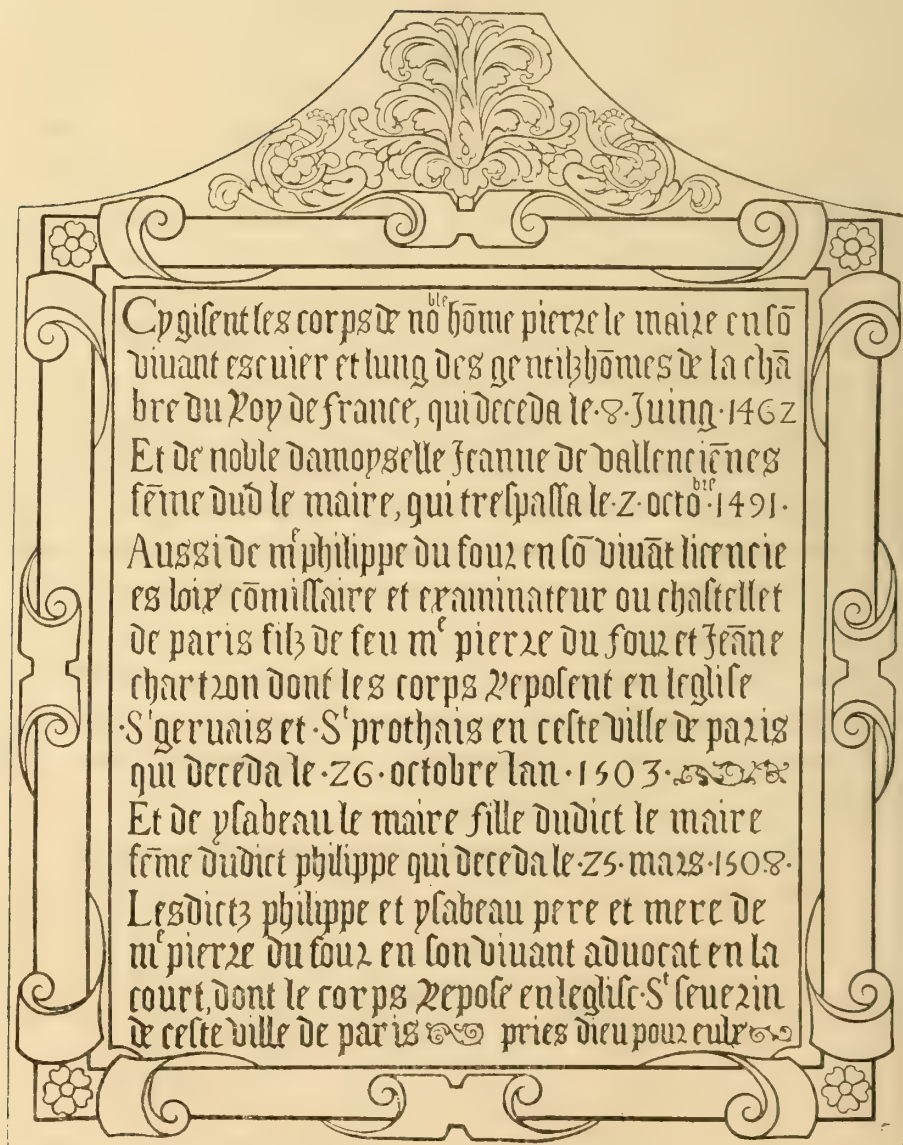 Cy giſent les corps de no^ble hōme pierre le maire en ſō
viuant escuier et lung des gentilzhōmes de la chā
bre du Roy de france, qui deceda le·8·Juing·1462
Et de noble damoyselle Jeanne de vallenciēnes
fēme dud̄ le maire, qui treſpaſſa le·2·octo^bre·1491·
Aussi de m^e philippe du four en ſō viuāt licencie
es loix cōmiſſaire et examinateur ou chaſtellet
de paris filz de feu m^e pierre du four et Jeāne
chartron dont les corps Repoſent en legliſe
·S^t geruais et·S^t prothais en ceſte ville de paris
qui deceda le·26·octobre lan·1503·
Et de yſabeau le maire fille dudict le maire
fēme dudict philippe qui deceda le·25·mars·1508·
Lesdictz philippe et yſabeau pere et mere de
m^e pierre du four en ſon viuant aduocat en la
court, dont le corps Repoſe en legliſe·S^t ſeuerin
de ceſte ville de paris pries dieu pour eulx